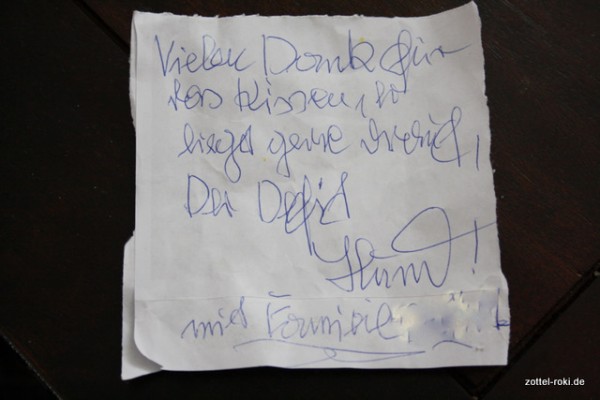 Vielen Dank für
das Kissen, er
liegt gerne
Der Defizit
Hund!
mit Familie
zottel-roki.de